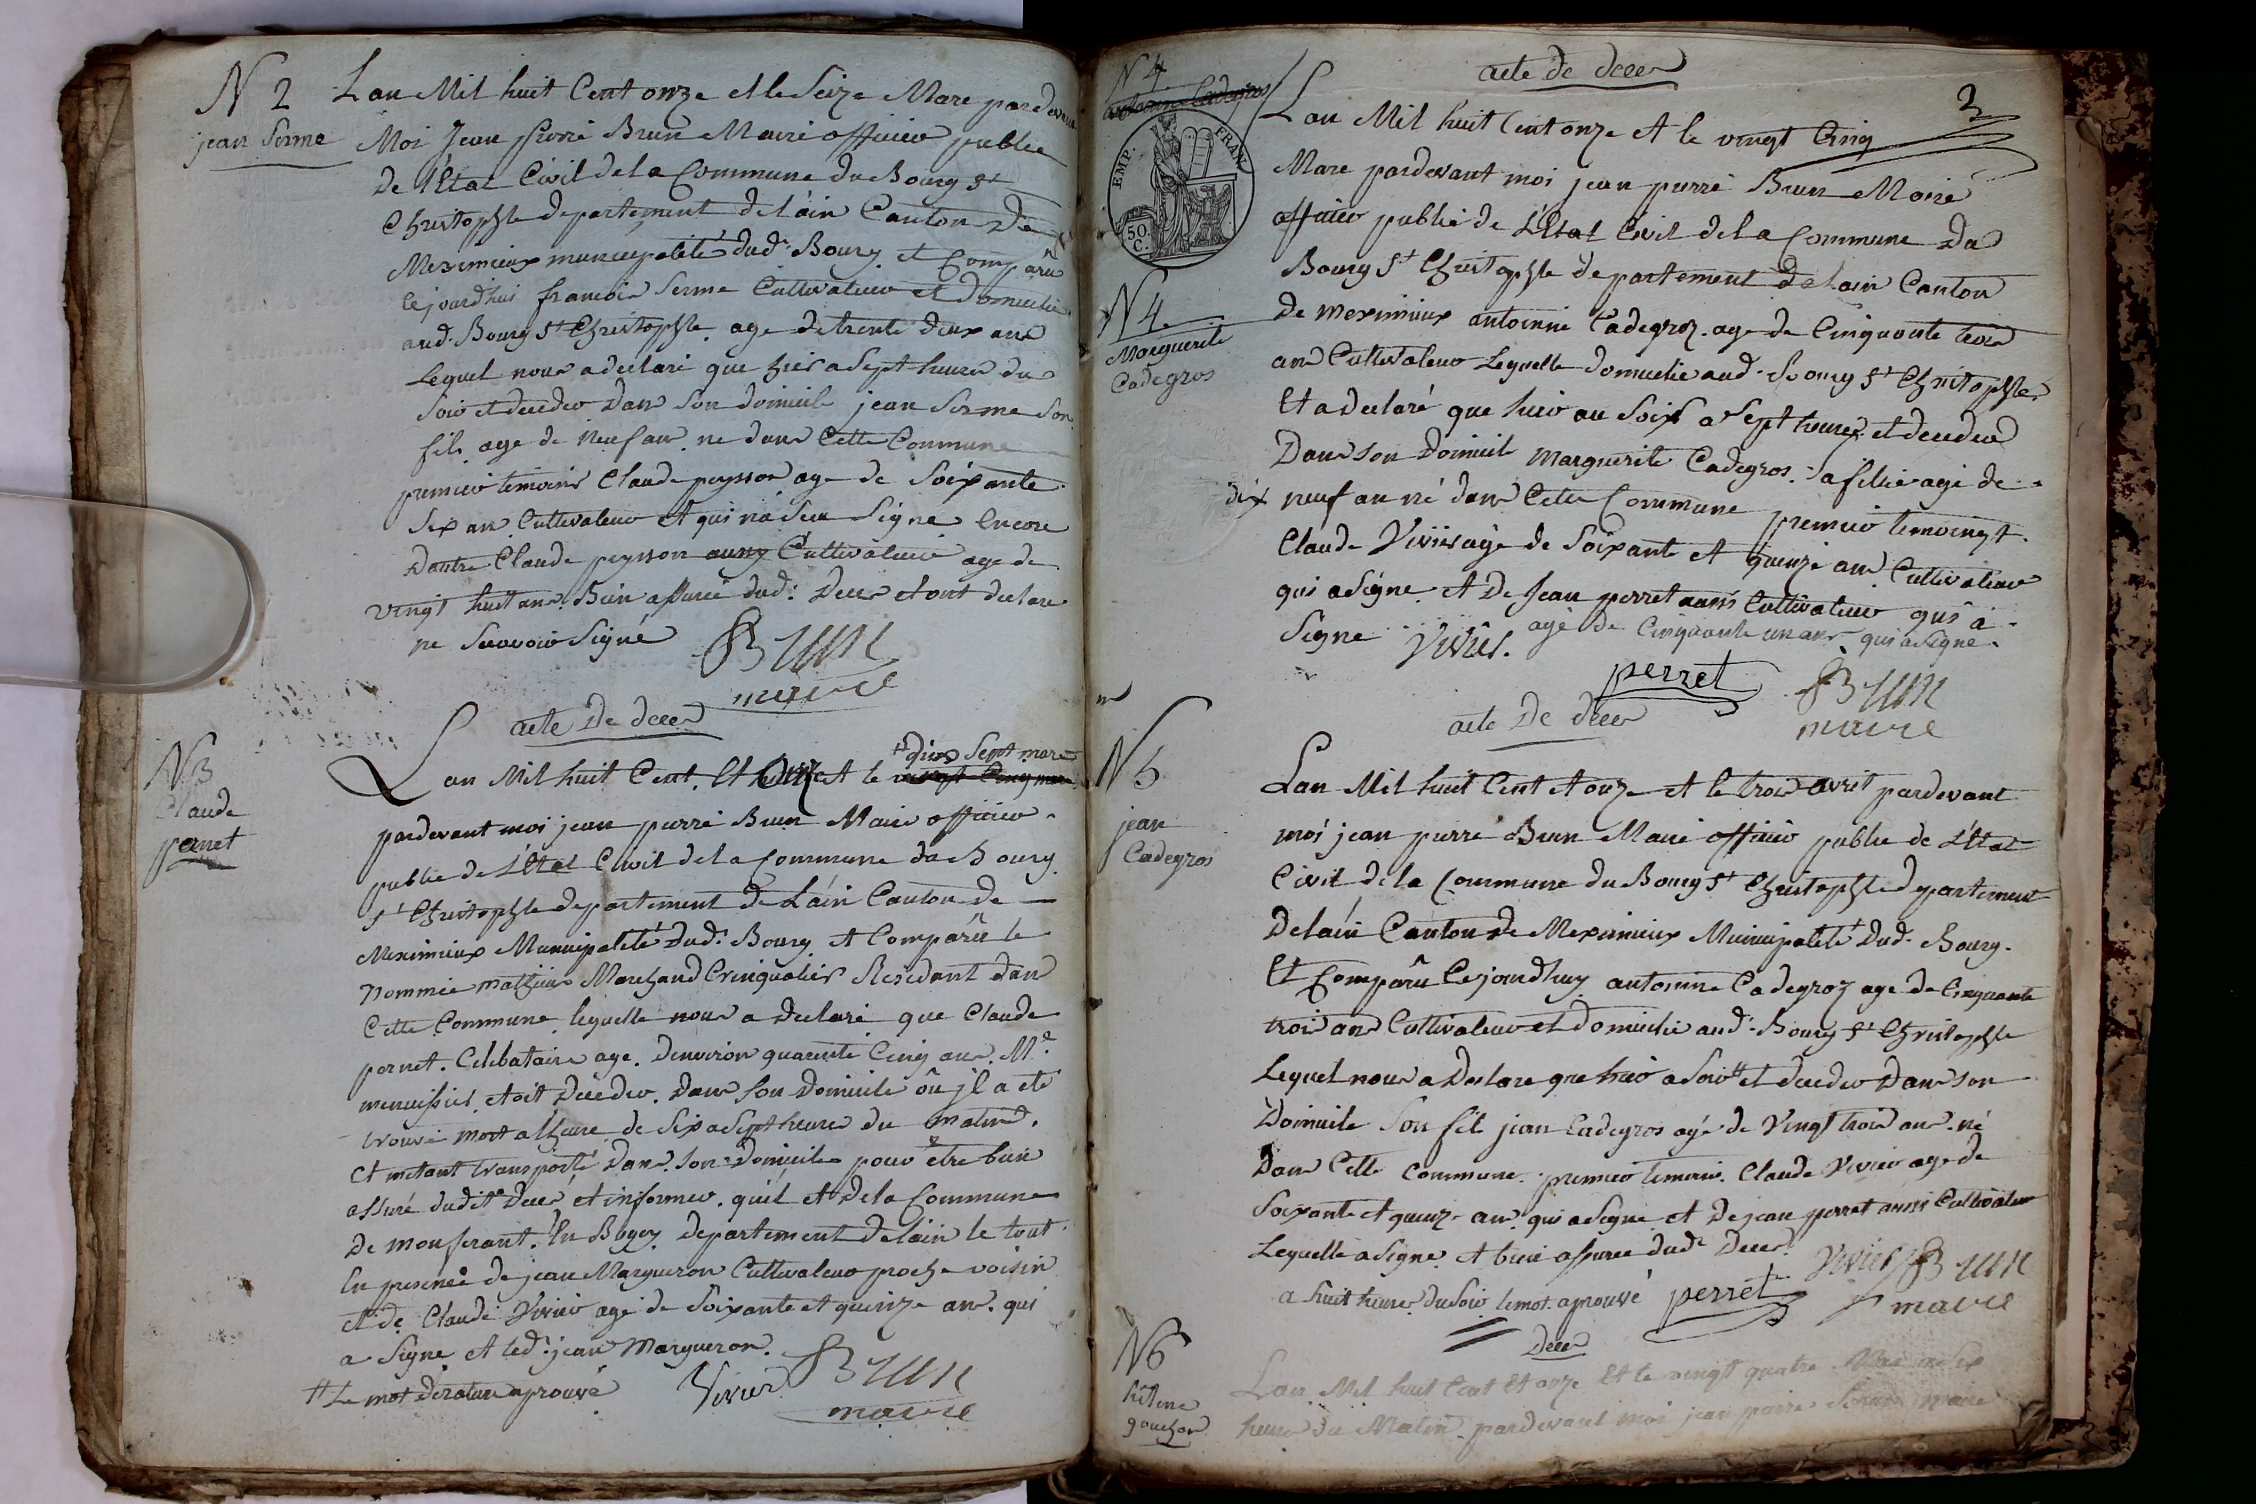 N 2
jean Serme
L'an Mil huit Cent onze et le Seize Mars pardevant
Moi Jean pierre Brun Maire officier public
De l'Etat Civil de la Commune du Bourg St
Christophle departement de l'ain Canton De
Meximieux municipalité dud. Bourg et Comparû
Cejourdhui francois Serme Cultivateur et domicilie
aud. Bourg St Christophle age de trente deux ans
Lequel nous a declaré que hier a Sept heures du
Soir et deceder Dans Son domicile jean Serme Son
fils age de Neuf ans ne dans Cette Commune
premier temoins Claude peysson age de Soixante
Six ans Cultivateur et qui n'a Seu Signe Encore
Dautre Claude peysson aussy Cultivateur age de
vingt huit ans Bien assuré dud. Deces et ont declare
ne Scavoir Signé
Brun
maire
acte De deces
N 3
Claude
pernet
dix Sept mars
L'an Mil huit Cent Et Onze Et le vingt Cinq mars
pardevant moi jean pierre Brun Maire officier
public de L'Etat Civil de la Commune du Bourg
St Christophle departement de L'ain Canton de
Meximieux Municipalité Dud. Bourg Et Comparû le
Nommée mathieu Marchand Cringualier Residant dans
Cette Commune lequelle nous a declaré que Claude
pernet. Celibataire age. Denviron quarente Cinq ans. Md
menuisier etoit Deceder. Dans Son Domicile oû jl a ete
trouvé mort a lheure de Six a Sept heures du matin.
Et metant transporté Dans Son Domicile pour être bien
assuré dudit Deces et informer. quil et De la Commune
De monferant. En Bugey. Departement De lain le tout
En presence de jean Margueron Cultivateur proche voisin
et de Claude Vivier age de Soixante et quinze ans. qui
a Signe et led. jean Margueron.
Le mot de rature aprouvé
Vivier
Brun
maire
acte de deces
3
N 4
antoinne Cadegros
EMP. FRAN.
50.
C.
N 4
Marguerite
Cadegros
L'an Mil huit Cent onze et le vingt Cinq
Mars pardevant moi jean pierre Brun Maire
officier public de L'Etat Civil de la Commune Du
Bourg St Christophle departement de Lain Canton
De meximieux antoinne Cadegroz. age de Cinquante trois
ans Cultivateur Lequelle domicilie aud. Bourg St Christophle
Et a declaré que hier au Soir a Sept heures et deceder
Dans son Domicile Marguerite Cadegros. Sa fillie agé de
dix neuf an né dans Cette Commune premier temoingt.
Claude Vivier agé de Soixante et quinze ans Cultivateur
qui a Signe et De Jean perret aussi Cultivateur qui a
Signe agé de Cinquante un ans qui a Signe.
Vivier.
perret
Brun
maire
acte De deces
N 5
jean
Cadegros
L'an Mil huit Cent et onze et le trois avril pardevant
moi jean pierre Brun Maire officier public de L'Etat
Civil de la Commune du Bourg St Christophle departement
De lain Canton De Meximieux Municipalité Dud. Bourg.
Et Comparû Cejourdhuy antoinne Cadegroz age de Cinquante
trois ans Cultivateur et Domicilie aud. Bourg St Christophle
Lequel nous a Declare que hier a Soir et deceder Dans son
Domicile Son fils jean Cadegros agé de Vingt trois ans. né
Dans Cette Commune. premier temoins. Claude Vivier age de
Soixante et quinze ans. qui a Signe et De jean perret aussi Cultivateur
Lequelle a Signe et bien assuree dud. Deces.
Vivier Brun
a huit heures du Soir le mot. aprouvé perret
maire
Deces
N 6
gouchon
L'an Mil huit Cent Et onze Et le vingt quatre Mai a Six
heures du Matin. pardevant moi jean pierre Brun maire